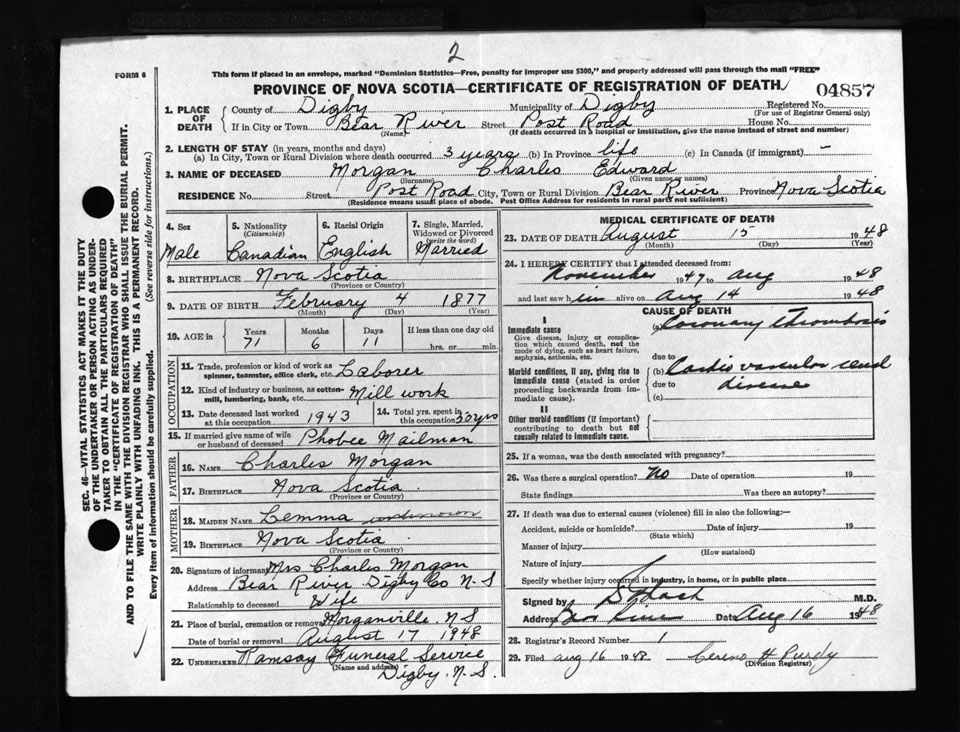 2
FORM 6
This form if placed in an envelope, marked "Dominion Statistics—Free, penalty for improper use $300," and properly addressed will pass through the mail "FREE"
PROVINCE OF NOVA SCOTIA—CERTIFICATE OF REGISTRATION OF DEATH 04857
1. PLACE OF DEATH
County of Digby Municipality of Digby Registered No.
(For use of Registrar General only)
If in City or Town Bear River Street Post Road House No.
(Name) (If death occurred in a hospital or institution, give the name instead of street and number)
2. LENGTH OF STAY (in years, months and days)
(a) In City, Town or Rural Division where death occurred 3 years (b) In Province life (c) In Canada (if immigrant) -
3. NAME OF DECEASED Morgan Charles Edward
(Surname) (Given name or names)
RESIDENCE No. Street Post Road City, Town or Rural Division Bear River Province Nova Scotia
(Residence means usual place of abode. Post Office Address for residents in rural parts not sufficient)
4. Sex Male
5. Nationality (Citizenship) Canadian
6. Racial Origin English
7. Single, Married, Widowed or Divorced (write the word) Married
8. BIRTHPLACE Nova Scotia
(Province or Country)
9. DATE OF BIRTH February 4 1877
(Month) (Day) (Year)
10. AGE in Years 71 Months 6 Days 11 If less than one day old hrs. or min.
OCCUPATION
11. Trade, profession or kind of work as spinner, teamster, office clerk, etc. Laborer
12. Kind of industry or business, as cotton-mill, lumbering, bank, etc. Mill work
13. Date deceased last worked at this occupation 1943
14. Total yrs. spent in this occupation 50 yrs
15. If married give name of wife or husband of deceased Phobee Mailman
FATHER
16. NAME Charles Morgan
17. BIRTHPLACE Nova Scotia
(Province or Country)
MOTHER
18. MAIDEN NAME Lemma unknown
19. BIRTHPLACE Nova Scotia
(Province or Country)
20. Signature of informant Mrs Charles Morgan
Address Bear River Digby Co N-S
Relationship to deceased Wife
21. Place of burial, cremation or removal Morganville, N S
Date of burial or removal August 17 1948
22. UNDERTAKER Ramsay Funeral Service
(Name and address)
Digby. N.S.
MEDICAL CERTIFICATE OF DEATH
23. DATE OF DEATH August 15 1948
(Month) (Day) (Year)
24. I HEREBY CERTIFY that I attended deceased from:
November 1947 to Aug 1948
and last saw him alive on Aug 14 1948
CAUSE OF DEATH
I
Immediate cause
Give disease, injury or complication which caused death, not the mode of dying, such as heart failure, asphyxia, asthenia, etc.
(a) Coronary thrombosis
due to
Morbid conditions, if any, giving rise to immediate cause (stated in order proceeding backwards from immediate cause).
(b) Cardio vascular renal
due to disease
(c)
II
Other morbid conditions (if important) contributing to death but not causally related to immediate cause.
25. If a woman, was the death associated with pregnancy?
26. Was there a surgical operation? No Date of operation 19
State findings Was there an autopsy?
27. If death was due to external causes (violence) fill in also the following:—
Accident, suicide or homicide? Date of injury 19
(State which)
Manner of injury
(How sustained)
Nature of injury
Specify whether injury occurred in industry, in home, or in public place
Signed by M.D.
Address Bear River Date Aug 16 1948
28. Registrar's Record Number 1
29. Filed Aug 16 1948 Cereno H Purdy
(Division Registrar)
SEC. 46—VITAL STATISTICS ACT MAKES IT THE DUTY
OF THE UNDERTAKER OR PERSON ACTING AS UNDER-
TAKER TO OBTAIN ALL THE PARTICULARS REQUIRED
IN THE "CERTIFICATE OF REGISTRATION OF DEATH"
AND TO FILE THE SAME WITH THE DIVISION REGISTRAR WHO SHALL ISSUE THE BURIAL PERMIT.
WRITE PLAINLY WITH UNFADING INK. THIS IS A PERMANENT RECORD.
Every item of information should be carefully supplied. (See reverse side for instructions.)